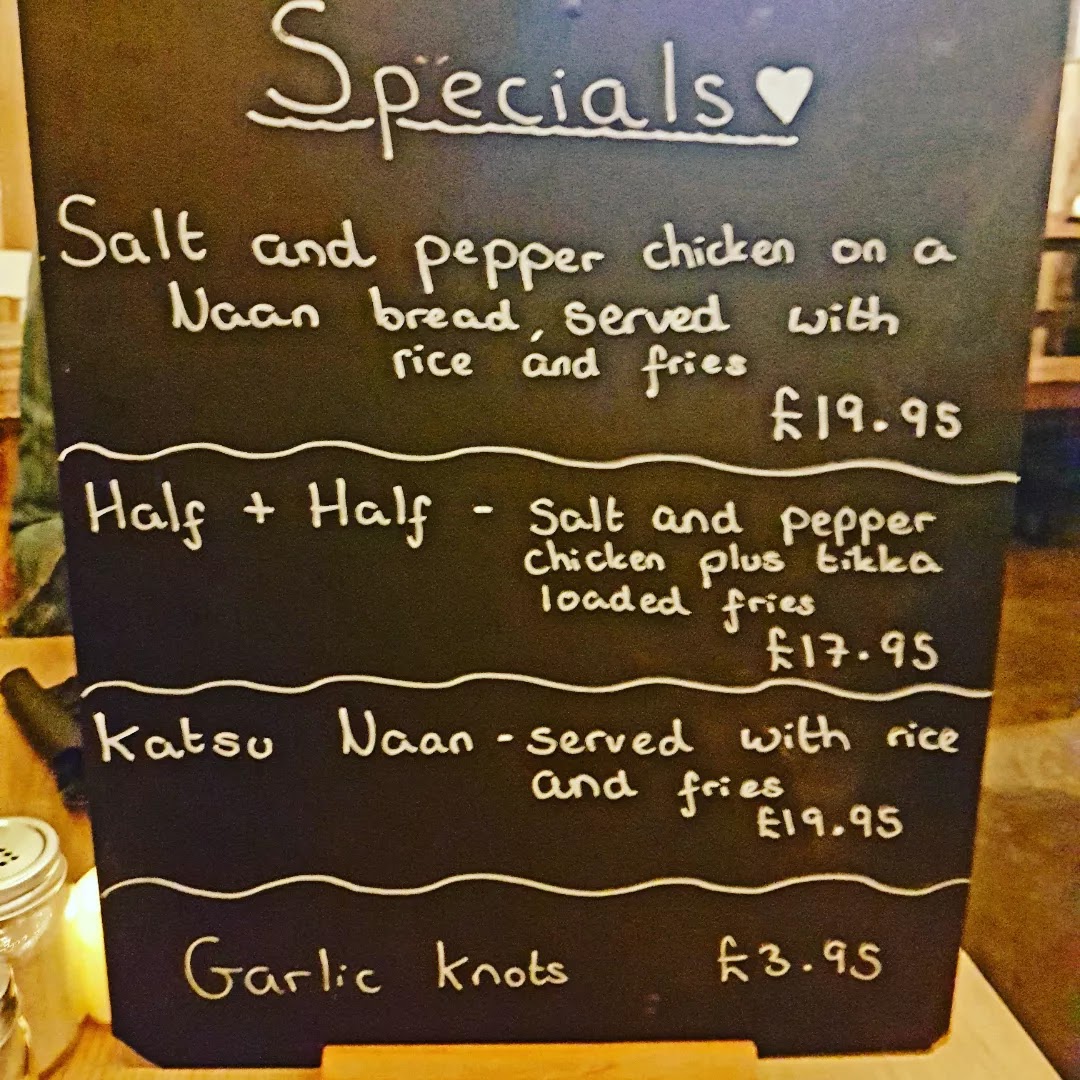 Specials
Salt and pepper chicken on a
Naan bread, served with
rice and fries
£19.95
Half + Half - Salt and pepper
chicken plus tikka
loaded fries
£17.95
Katsu Naan - served with rice
and fries
£19.95
Garlic knots £3.95